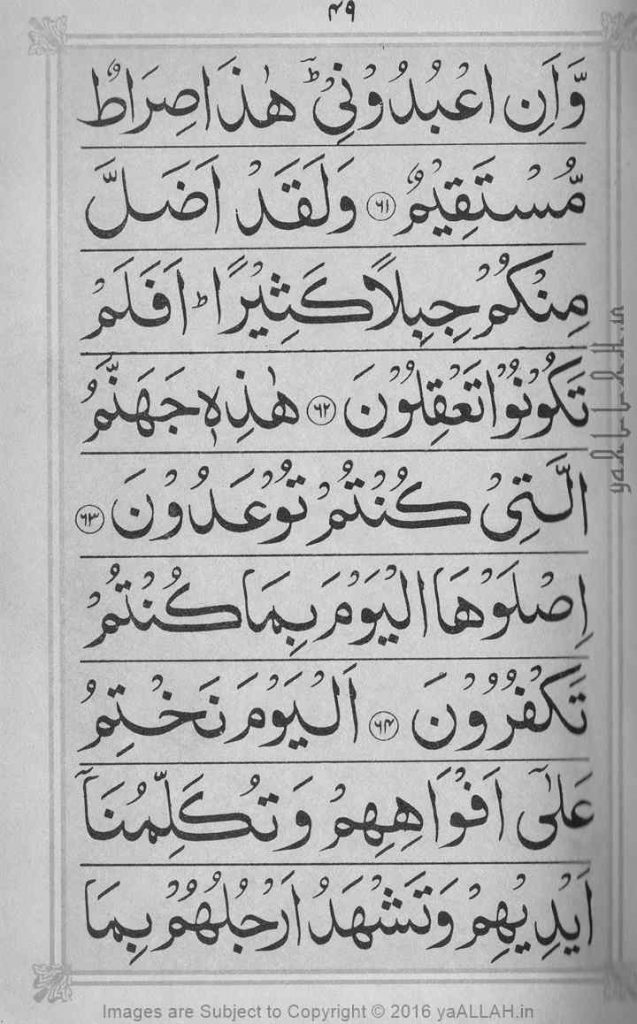 ۴۹
وَّاَنِ اعْبُدُوْنِیْ ؕؔ هٰذَا صِرَاطٌ
مُّسْتَقِیْمٌ ۶۱ وَلَقَدْ اَضَلَّ
مِنْكُمْ جِبِلًّا كَثِیْرًا ؕ اَفَلَمْ
تَكُوْنُوْا تَعْقِلُوْنَ ۶۲ هٰذِهٖ جَهَنَّمُ
الَّتِیْ كُنْتُمْ تُوْعَدُوْنَ ۶۳
اِصْلَوْهَا الْیَوْمَ بِمَا كُنْتُمْ
تَكْفُرُوْنَ ۶۴ اَلْیَوْمَ نَخْتِمُ
عَلٰۤی اَفْوَاهِهِمْ وَتُكَلِّمُنَاۤ
اَیْدِیْهِمْ وَتَشْهَدُ اَرْجُلُهُمْ بِمَا
yaALLAH.in
Images are Subject to Copyright © 2016 yaALLAH.in